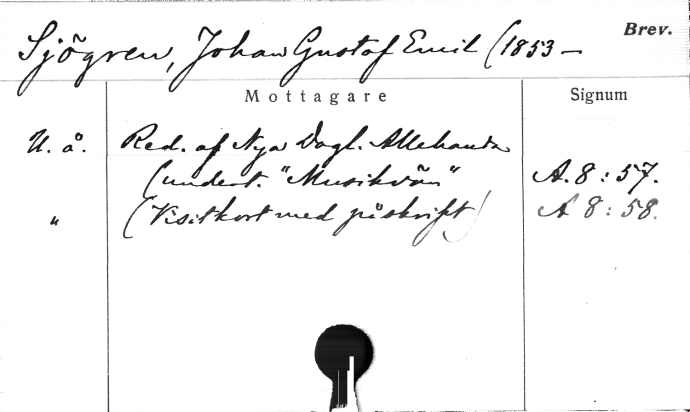 Brev.
Sjögren, Johan Gustaf Emil (1853 –
Mottagare Signum
U. å. Red. af Nya Dagl. Allehanda
(undert. "Musikvän" A. 8 : 57.
" (Visitkort med påskrift) A 8 : 58.